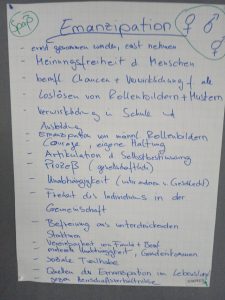 Spaß
Emanzipation
- ernst genommen werden, ernst nehmen
- Meinungsfreiheit d Menschen
- berufl. Chancen + Verwirklichung f. alle
- Loslösen von Rollenbildern + Mustern
- Verwirklichung in Schule und
Ausbildung
- Emanzipation von Rollenbildern
- Courage, eigene Haltung
- Artikulation d Selbstbestimmung
- Prozeß (gesellschaftlich)
- Unabhängigkeit (
- Freiheit des Individuums in der
Gemeinschaft
- Befreiung aus unterdrückenden
Strukturen
- Vereinbarkeit von Familie + Beruf
- Unabhängigkeit, Gender
- Soziale Teilhabe
- Quellen der Emanzipation im Lebenslauf